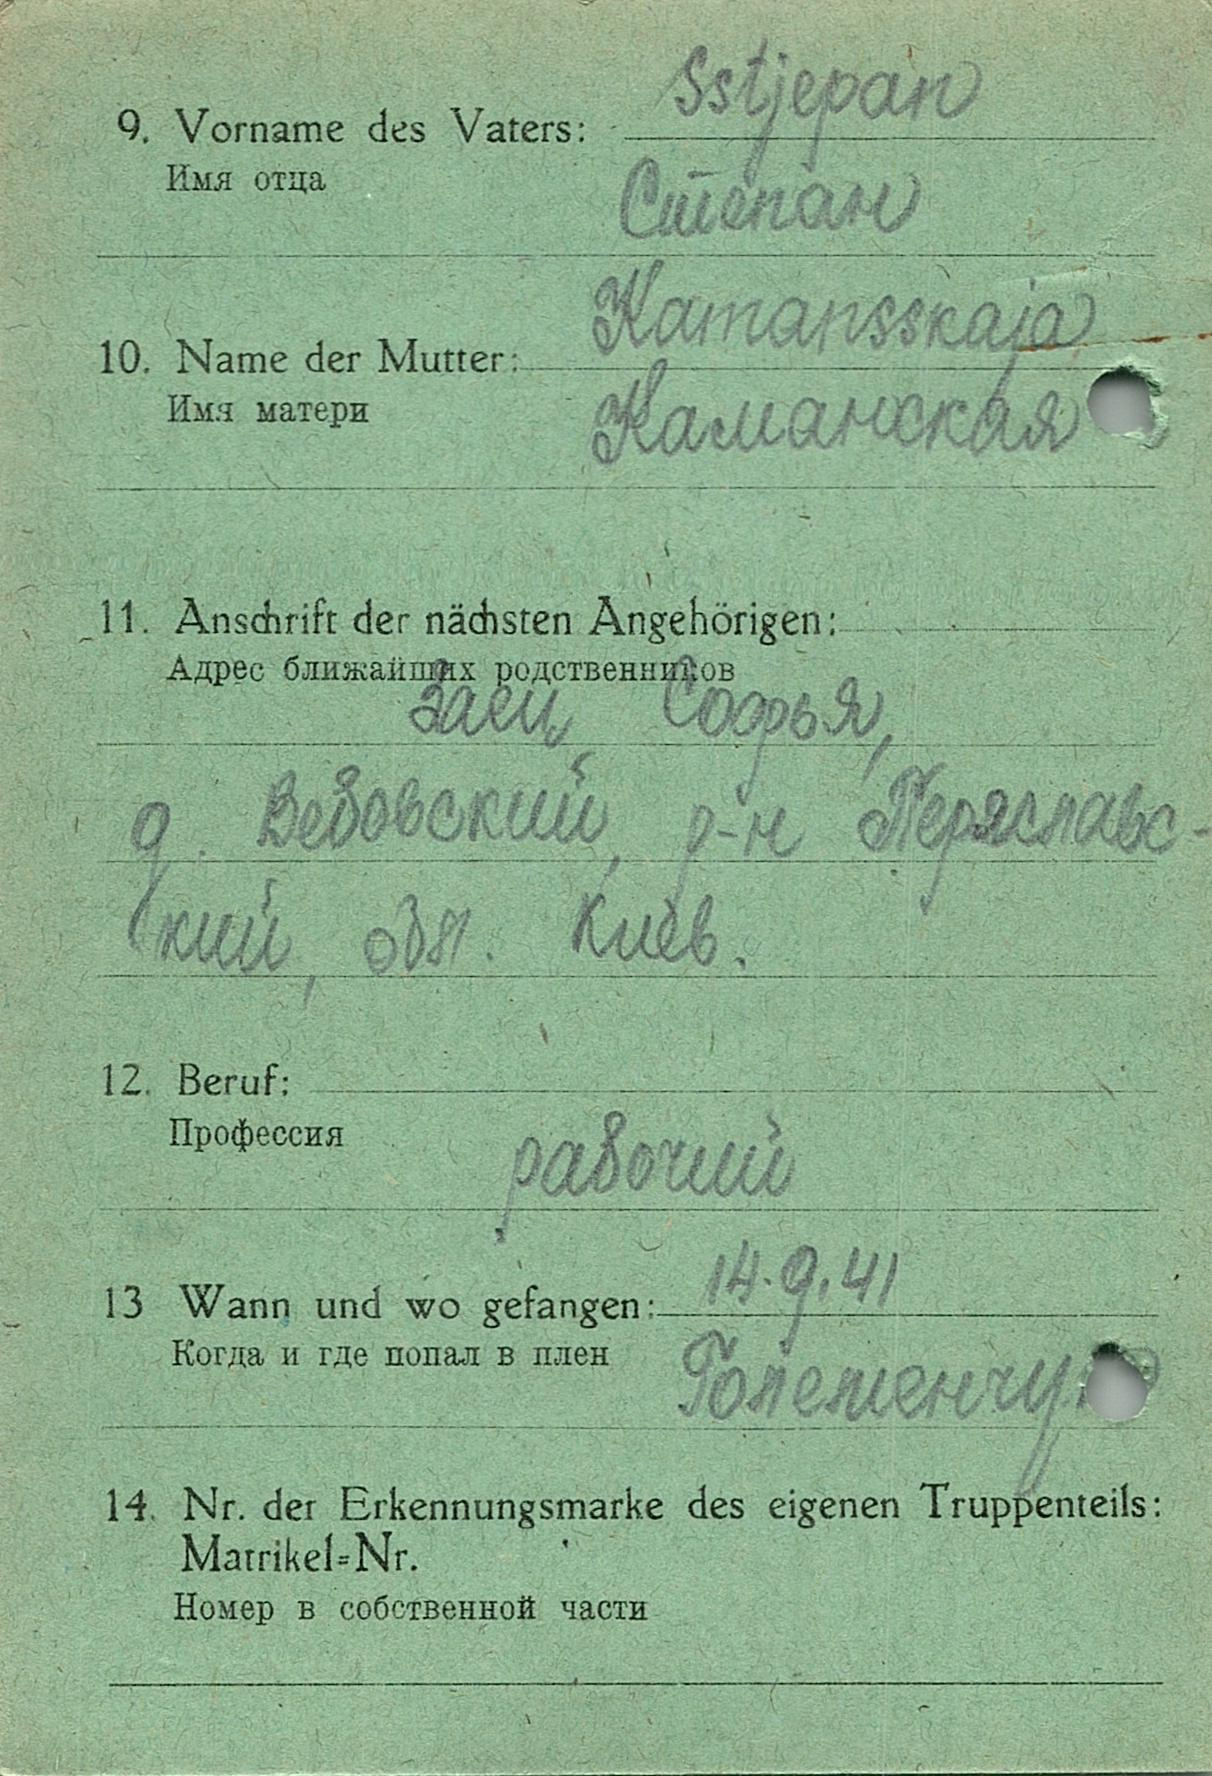 Sstjepan
9. Vorname des Vaters:
Имя отца
Степан
Kamansskaja
10. Name der Mutter:
Имя матери
Каманская
11. Anschrift der nächsten Angehörigen:
Адрес ближайших родственников
Заец Софья,
д. Вебовский, р-н Періяславс-
кий, обл. Киев.
12. Beruf:
Профессия
рабочий
14.9.41
13 Wann und wo gefangen:
Когда и где попал в плен
14. Nr. der Erkennungsmarke des eigenen Truppenteils:
Matrikel=Nr.
Номер в собственной части